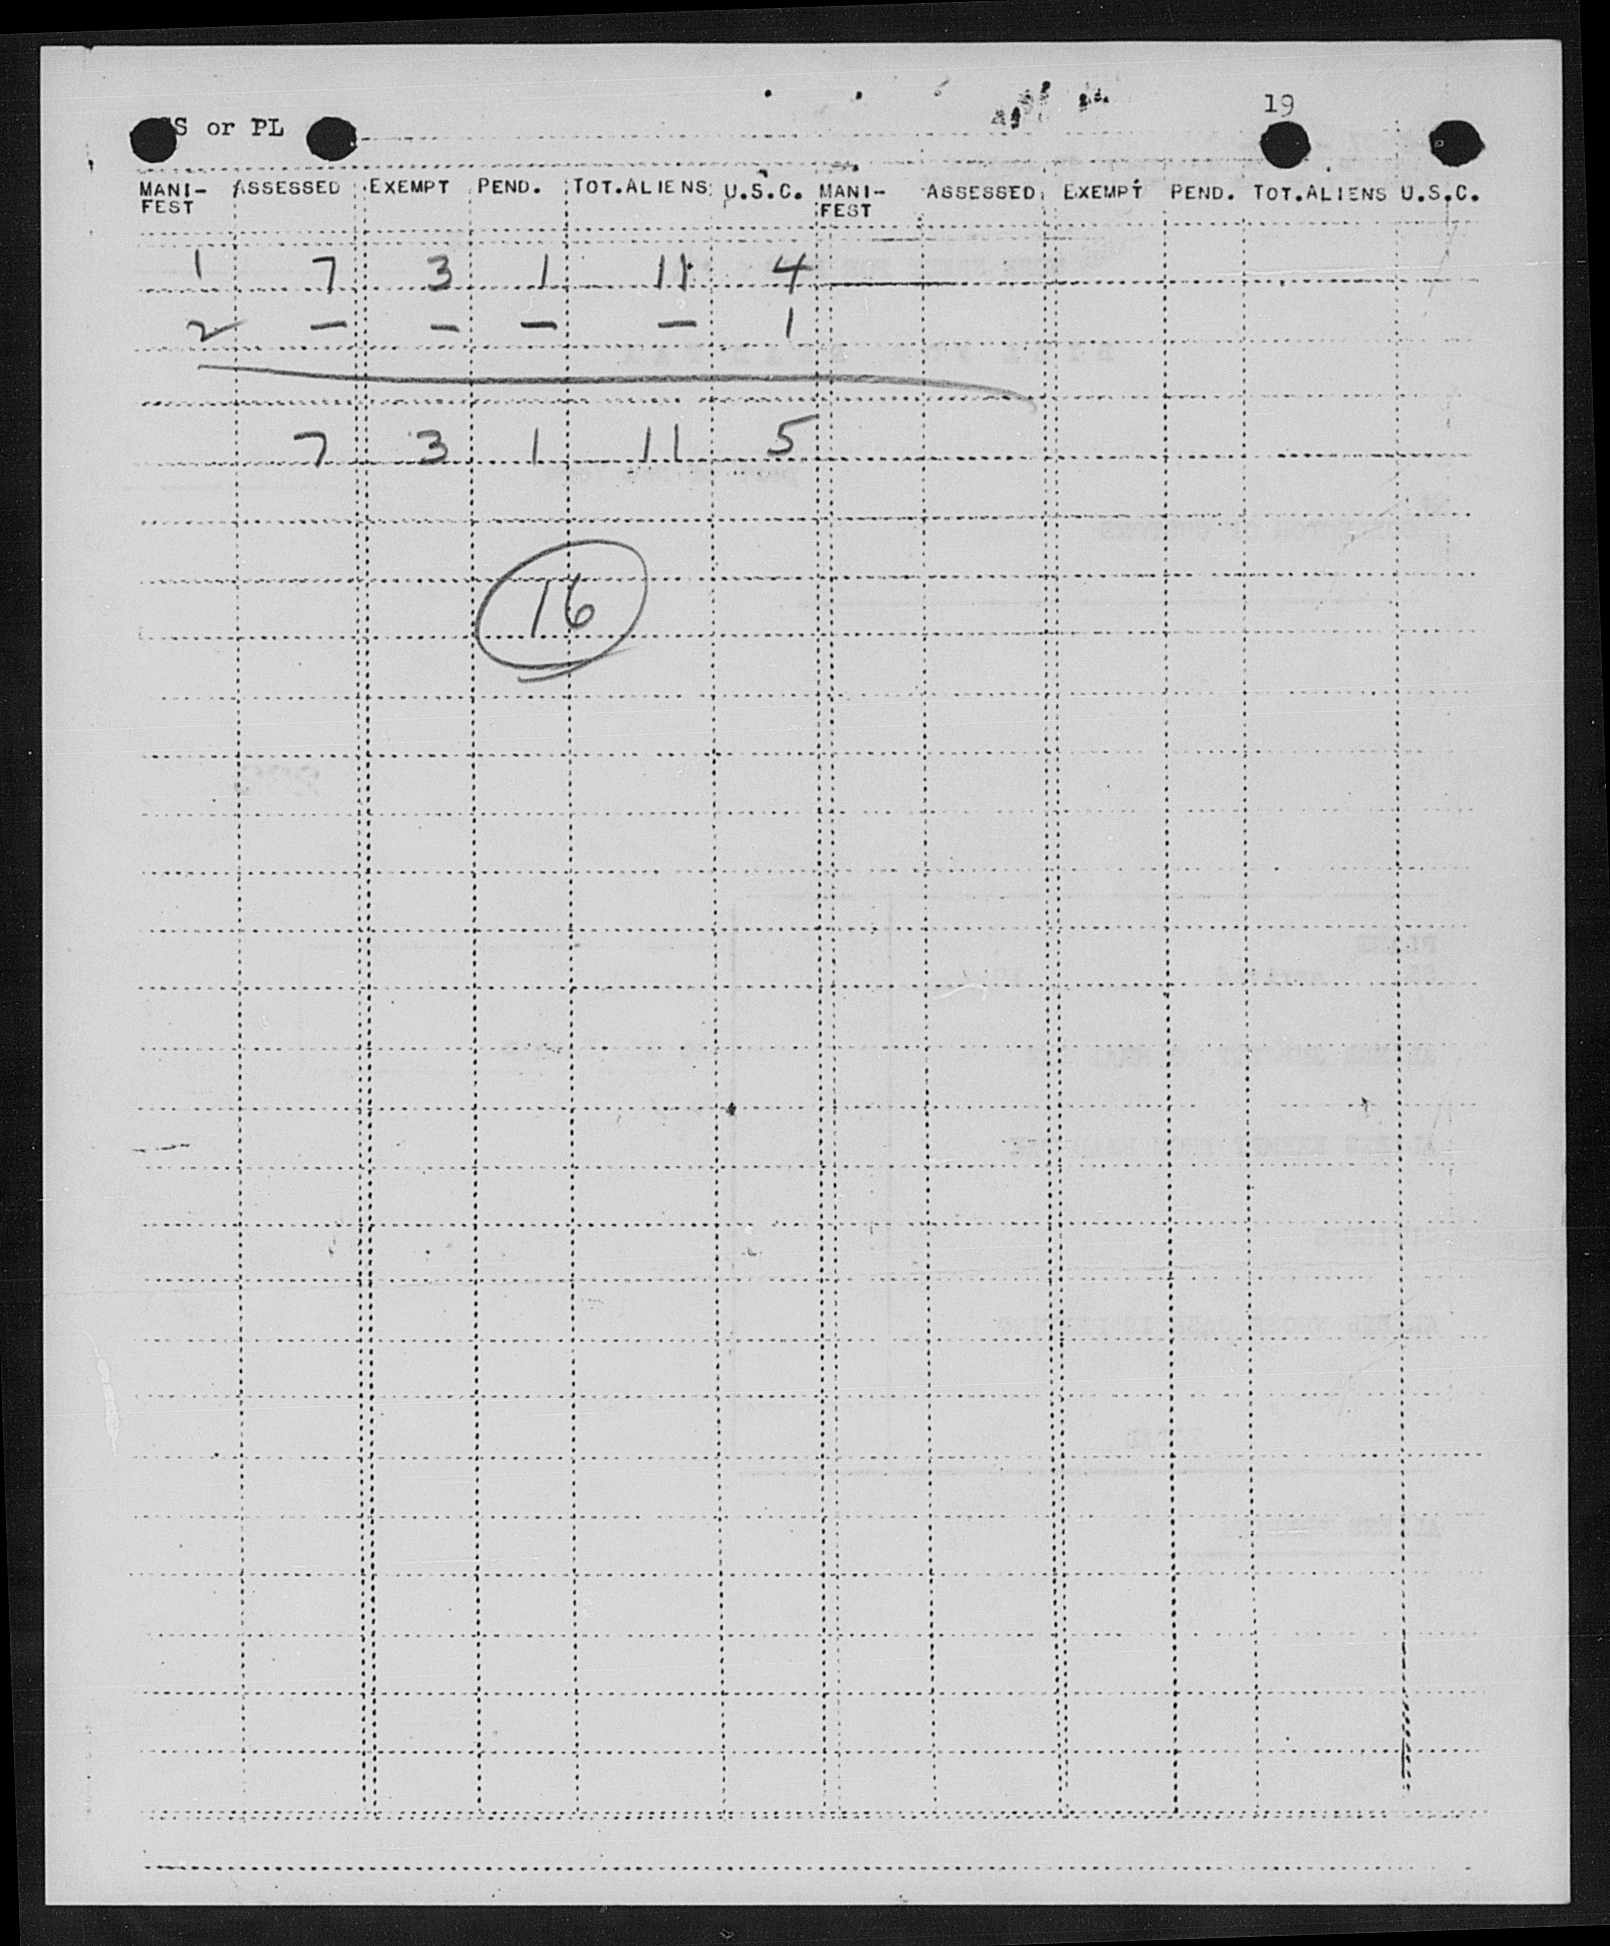 SS or PL 19
MANI- ASSESSED EXEMPT PEND. TOT.ALIENS U.S.C. MANI- ASSESSED EXEMPT PEND. TOT.ALIENS U.S.C.
FEST FEST
1 7 3 1 11 4
2 — — — — 1
7 3 1 11 5
16